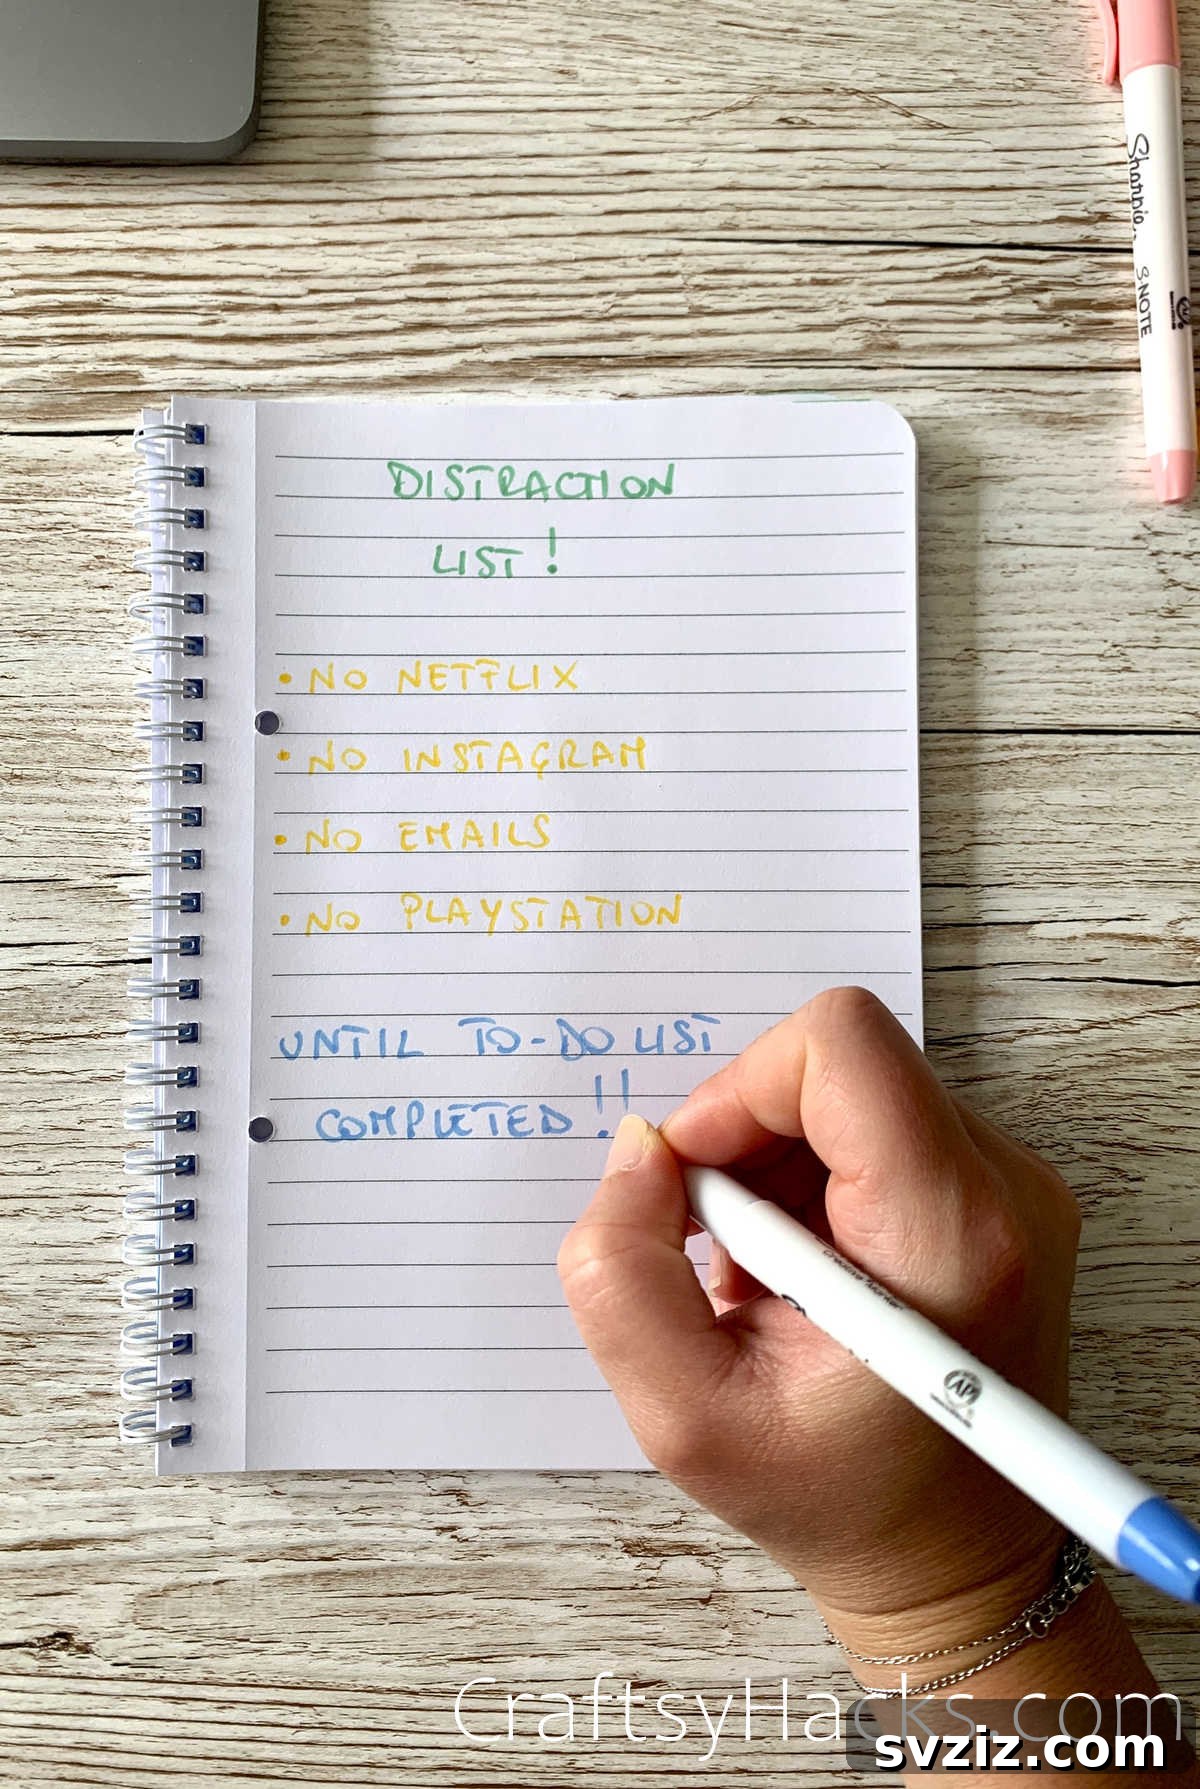 Sharpie
S·NOTE
DISTRACTION
LIST!
• NO NETFLIX
• NO INSTAGRAM
• NO EMAILS
• NO PLAYSTATION
UNTIL TO-DO LIST
COMPLETED!!
Creative Marker
AP
CraftsyHacks.com
svziz.com